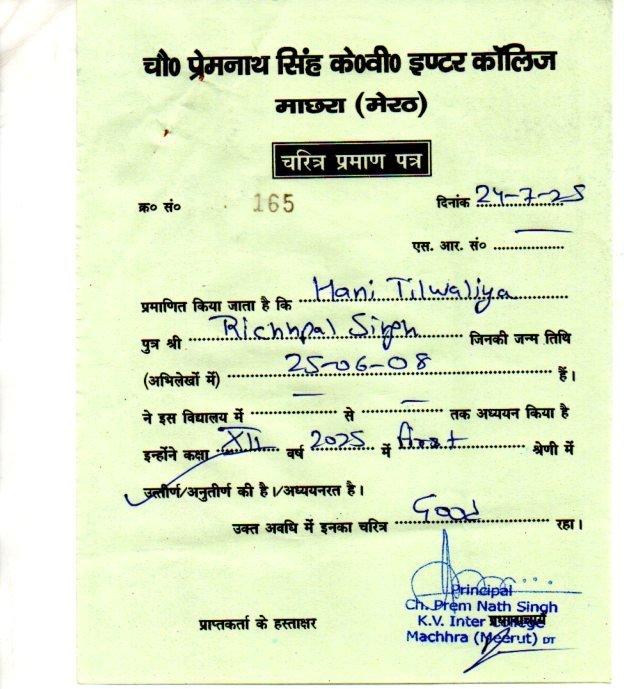 चौ० प्रेमनाथ सिंह के०वी० इण्टर कॉलिज
माछरा (मेरठ)
चरित्र प्रमाण पत्र
क्र० सं० 165 दिनांक 24-7-25
एस. आर. सं० —
प्रमाणित किया जाता है कि Hani Tilwaliya
पुत्र श्री Richhpal Singh जिनकी जन्म तिथि
(अभिलेखों में) 25-06-08 हैं।
ने इस विद्यालय में — से — तक अध्ययन किया है
इन्होंने कक्षा XII वर्ष 2025 में First श्रेणी में
उत्तीर्ण/अनुतीर्ण की है।/अध्ययनरत है।
उक्त अवधि में इनका चरित्र Good रहा।
Principal
Ch. Prem Nath Singh
K.V. Inter College
प्रधानाचार्य
Machhra (Meerut) DT
प्राप्तकर्ता के हस्ताक्षर